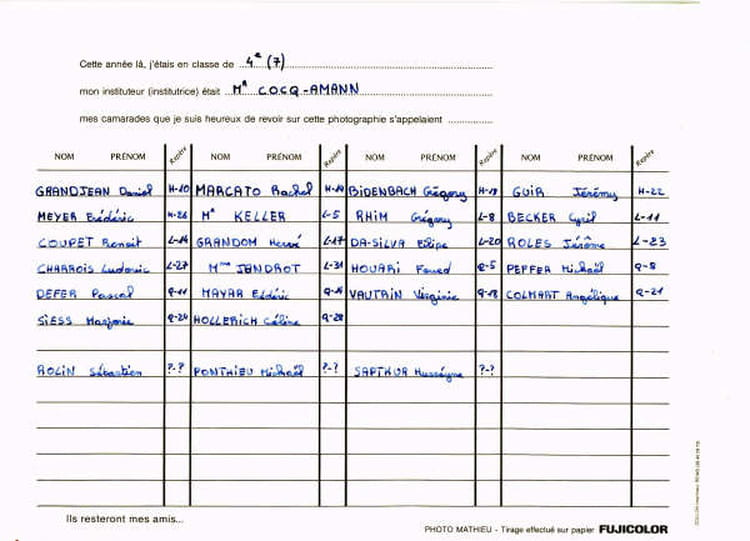 Cette année là, j'étais en classe de 4e (7)
mon instituteur (institutrice) était Mr COCQ-AMANN
mes camarades que je suis heureux de revoir sur cette photographie s'appelaient
NOM PRÉNOM Repère NOM PRÉNOM Repère NOM PRÉNOM Repère NOM PRÉNOM Repère
GRANDJEAN Daniel H-10 MARCATO Rachel H-14 BIDENBACH Grégory H-18 GUIR Jérémy H-22
MEYER Frédéric H-26 Mr KELLER L-5 RHIM Grégory L-8 BECKER Cyril L-11
COUPET Benoit L-14 GRANDOM Hervé L-17 DA-SILVA Filipe L-20 ROLES Jérôme L-23
CHARROIS Ludovic L-27 Mme JENDROT L-31 HOUARI Foued Q-5 PEFFER Michaël Q-8
DEFER Pascal Q-11 MAYAR Eddéric VAUTRIN Virginie Q-18 COLMART Angélique Q-21
SIESS Marjorie Q-24 HOLLERICH Céline Q-28
ROLIN Sébastien ?-? PONTHIEU Michaël ?-? SAPTHUR ?-?
Ils resteront mes amis...
PHOTO MATHIEU - Tirage effectué sur papier FUJICOLOR